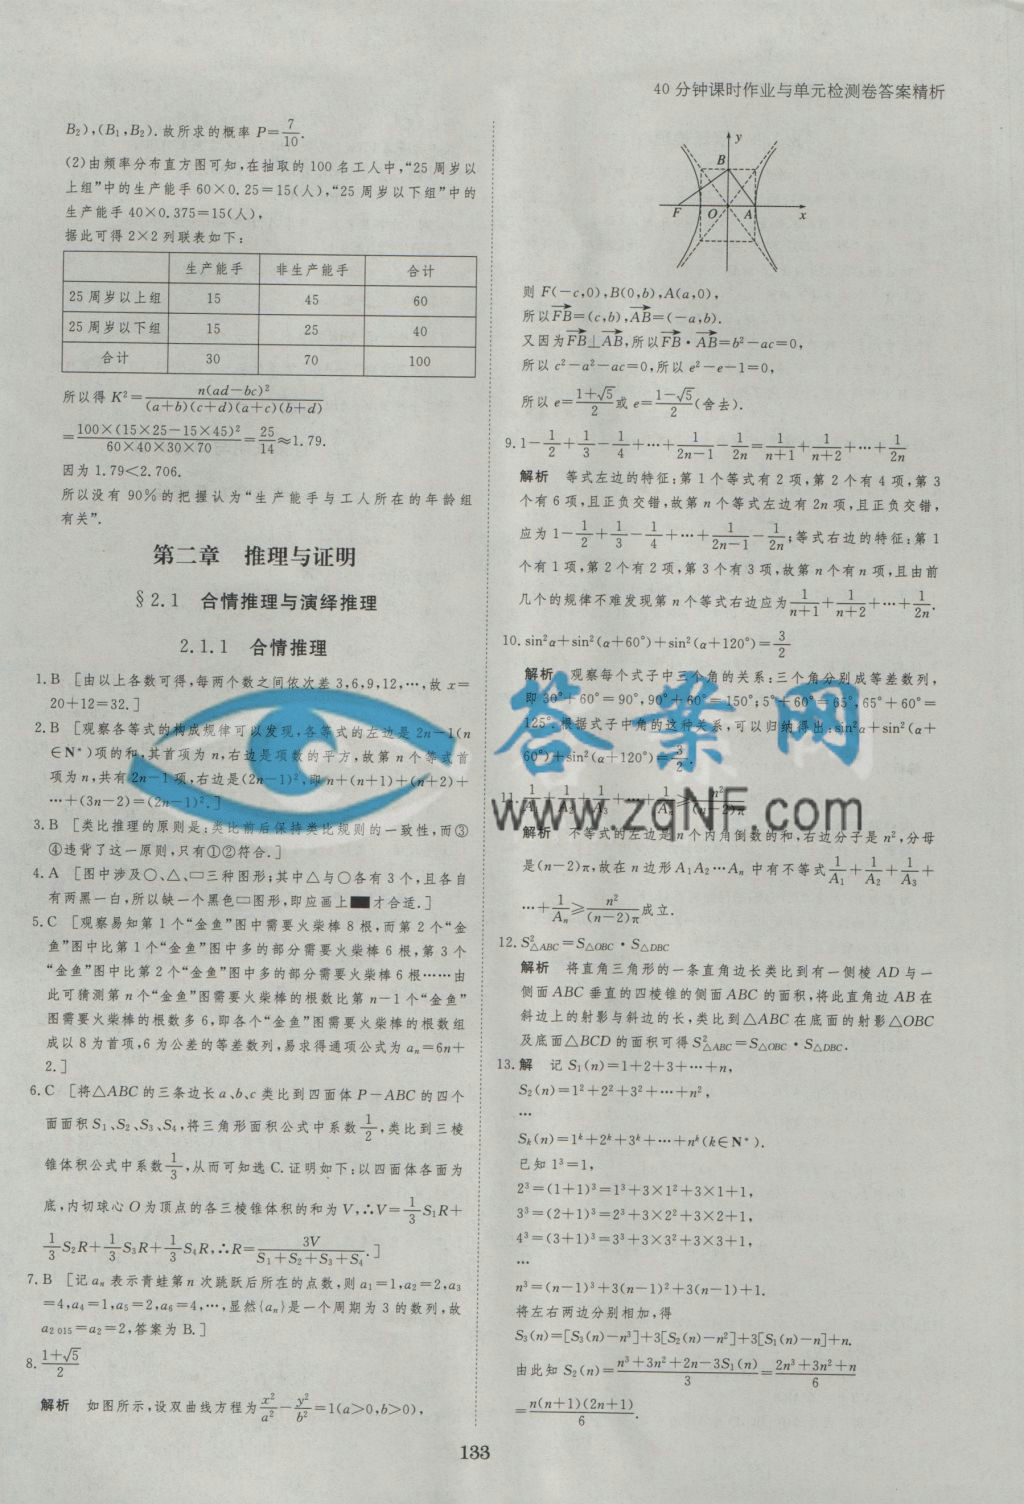 40分钟课时作业与单元检测卷答案精析
B₂),(B₁,B₂).故所求的概率 P=7/10.
(2)由频率分布直方图可知,在抽取的100名工人中,“25周岁以
上组”中的生产能手60×0.25=15(人),“25周岁以下组”中的
生产能手40×0.375=15(人),
据此可得2×2列联表如下:
生产能手 非生产能手 合计
25周岁以上组 15 45 60
25周岁以下组 15 25 40
合计 30 70 100
所以得 K²=n(ad-bc)²/(a+b)(c+d)(a+c)(b+d)
=100×(15×25-15×45)²/60×40×30×70=25/14≈1.79.
因为1.79<2.706.
所以没有90%的把握认为“生产能手与工人所在的年龄组
有关”.
第二章 推理与证明
§2.1 合情推理与演绎推理
2.1.1 合情推理
1.B [由以上各数可得,每两个数之间依次差3,6,9,12,…,故x=
20+12=32.]
2.B [观察各等式的构成规律可以发现,各等式的左边是2n-1(n
∈N*)项的和,其首项为n,右边是项数的平方,故第n个等式首
项为n,共有2n-1项,右边是(2n-1)²,即n+(n+1)+(n+2)+
…+(3n-2)=(2n-1)².]
3.B [类比推理的原则是:类比前后保持类比规则的一致性,而③
④违背了这一原则,只有①②符合.]
4.A [图中涉及○、△、▭三种图形;其中△与○各有3个,且各自
有两黑一白,所以缺一个黑色▭图形,即应画上■才合适.]
5.C [观察易知第1个“金鱼”图中需要火柴棒8根,而第2个“金
鱼”图中比第1个“金鱼”图中多的部分需要火柴棒6根,第3个
“金鱼”图中比第2个“金鱼”图中多的部分需要火柴棒6根……由
此可猜测第n个“金鱼”图需要火柴棒的根数比第n-1个“金鱼”
图需要火柴棒的根数多6,即各个“金鱼”图需要火柴棒的根数组
成以8为首项,6为公差的等差数列,易求得通项公式为aₙ=6n+
2.]
6.C [将△ABC的三条边长a、b、c类比到四面体P-ABC的四个
面面积S₁、S₂、S₃、S₄,将三角形面积公式中系数1/2,类比到三棱
锥体积公式中系数1/3,从而可知选C.证明如下:以四面体各面为
底,内切球心O为顶点的各三棱锥体积的和为V,∴V=1/3S₁R+
1/3S₂R+1/3S₃R+1/3S₄R,∴R=3V/S₁+S₂+S₃+S₄.]
7.B [记aₙ表示青蛙第n次跳跃后所在的点数,则a₁=1,a₂=2,a₃
=4,a₄=1,a₅=2,a₆=4,…,显然{aₙ}是一个周期为3的数列,故
a₂₀₁₅=a₂=2,答案为B.]
8.1+√5/2
解析 如图所示,设双曲线方程为x²/a²-y²/b²=1(a>0,b>0),
y
B
F O A x
则F(-c,0),B(0,b),A(a,0),
所以FB→=(c,b),AB→=(-a,b).
又因为FB→⊥AB→,所以FB→·AB→=b²-ac=0,
所以c²-a²-ac=0,所以e²-e-1=0,
所以e=1+√5/2或e=1-√5/2(舍去).
9.1-1/2+1/3-1/4+…+1/2n-1-1/2n=1/n+1+1/n+2+…+1/2n
解析 等式左边的特征:第1个等式有2项,第2个有4项,第3
个有6项,且正负交错,故第n个等式左边有2n项,且正负交错,
应为1-1/2+1/3-1/4+…+1/2n-1-1/2n;等式右边的特征:第1
个有1项,第2个有2项,第3个有3项,故第n个有n项,且由前
几个的规律不难发现第n个等式右边应为1/n+1+1/n+2+…+1/2n.
10.sin²α+sin²(α+60°)+sin²(α+120°)=3/2
解析 观察每个式子中三个角的关系:三个角分别成等差数列,
即30°+60°=90°,90°+60°=150°;5°+60°=65°,65°+60°=
125°.根据式子中角的这种关系,可以归纳得出:sin²α+sin²(α+
60°)+sin²(α+120°)=3/2.
11.1/A₁+1/A₂+1/A₃+…+1/Aₙ≥n²/(n-2)π
解析 不等式的左边是n个内角倒数的和,右边分子是n²,分母
是(n-2)π,故在n边形A₁A₂…Aₙ中有不等式1/A₁+1/A₂+1/A₃+
…+1/Aₙ≥n²/(n-2)π成立.
12.S²△ABC=S△OBC·S△DBC
解析 将直角三角形的一条直角边长类比到有一侧棱AD与一
侧面ABC垂直的四棱锥的侧面ABC的面积,将此直角边AB在
斜边上的射影与斜边的长,类比到△ABC在底面的射影△OBC
及底面△BCD的面积可得S²△ABC=S△OBC·S△DBC.
13.解 记S₁(n)=1+2+3+…+n,
S₂(n)=1²+2²+3²+…+n²,
…
Sₖ(n)=1ᵏ+2ᵏ+3ᵏ+…+nᵏ(k∈N*).
已知1³=1,
2³=(1+1)³=1³+3×1²+3×1+1,
3³=(2+1)³=2³+3×2²+3×2+1,
4³=(3+1)³=3³+3×3²+3×3+1,
…
n³=(n-1)³+3(n-1)²+3(n-1)+1.
将左右两边分别相加,得
S₃(n)=[S₃(n)-n³]+3[S₂(n)-n²]+3[S₁(n)-n]+n.
由此知S₂(n)=n³+3n²+2n-3S₁(n)/3=2n³+3n²+n/6
=n(n+1)(2n+1)/6.
133
答案网
www.zqNF.com